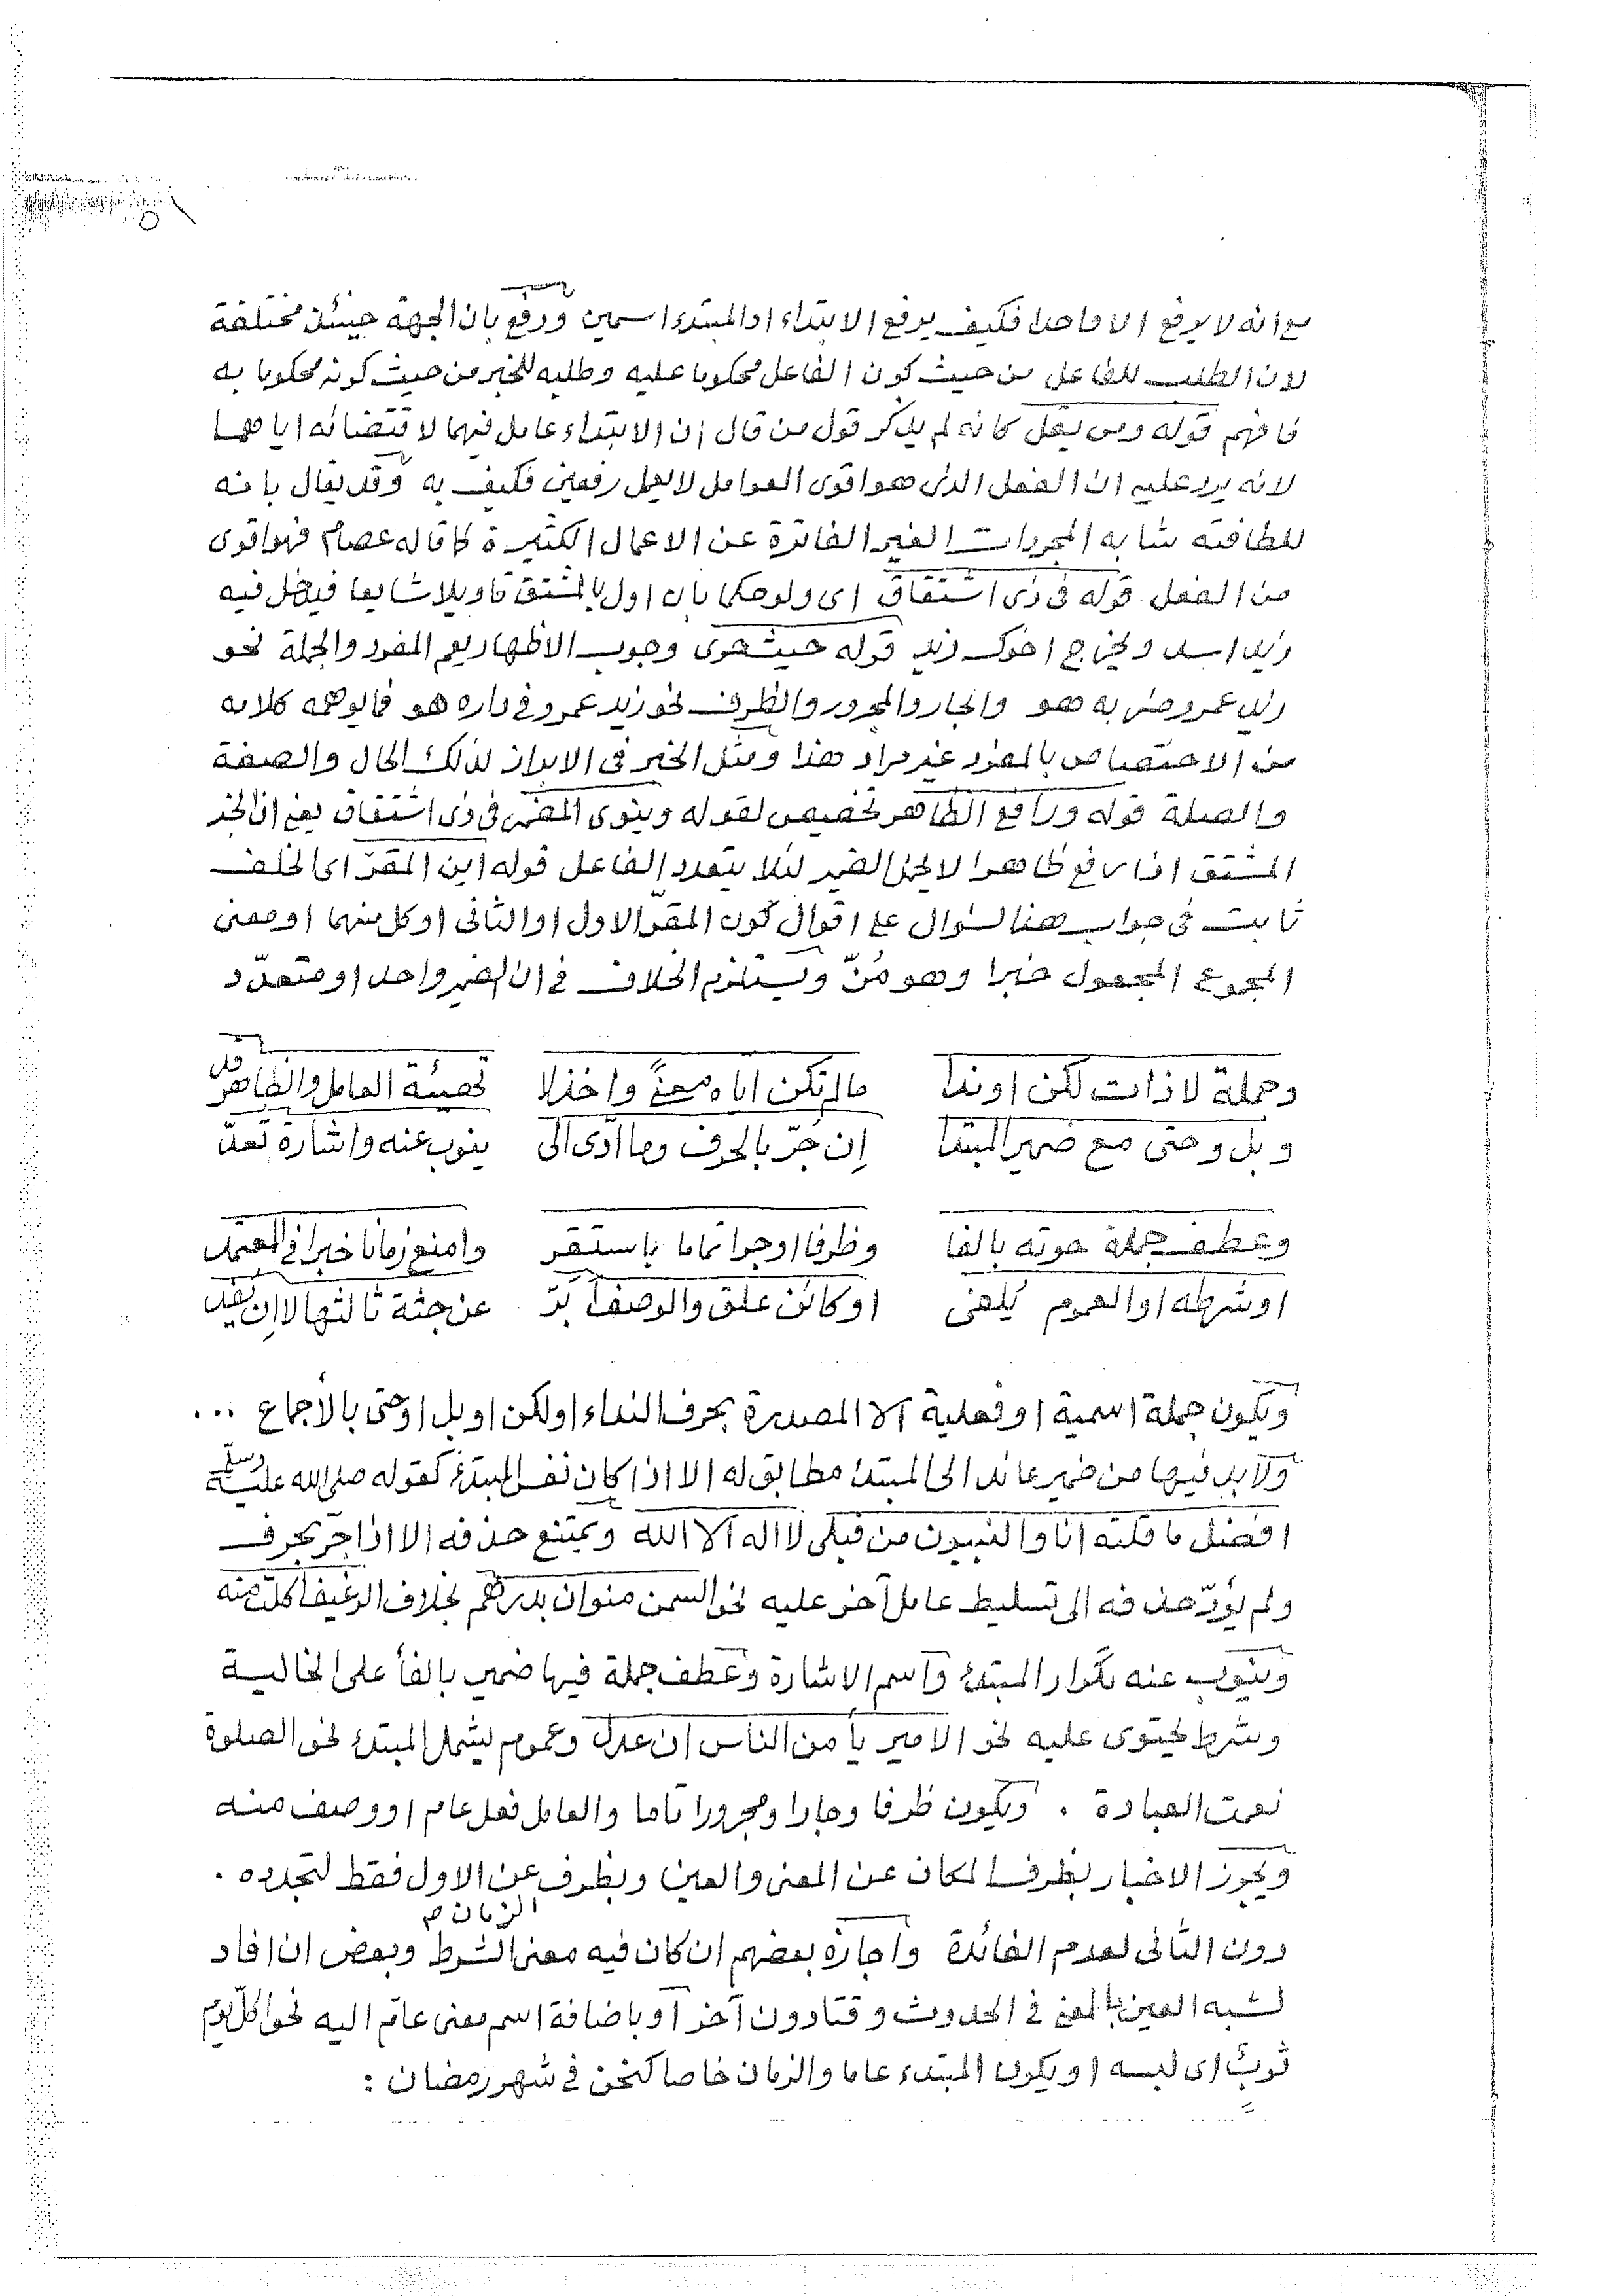 مع انه لا يرفع الا واحدا فكيف يرفع الابتداء او المبتدء اسمين ودفع بان الجهة حينئذ مختلفة
لان الطلب للفاعل من حيث كون الفاعل محكوما عليه وطلبه للخبر من حيث كونه محكوما به
فافهم قوله ومن يقل كانه لم يذكر قول من قال ان الابتداء عامل فيهما لاقتضائه اياهما
لانه يرد عليه ان الفعل الذى هو اقوى العوامل لا يعمل رفعين فكيف به وقد يقال بانه
للطافته شابه المجردات الغير الفاترة عن الاعمال الكثيرة كما قاله عصام فهو اقوى
من الفعل قوله فى ذى اشتقاق اى ولو حكما بان اول بالمشتق تاويلا شايعا فيدخل فيه
زيد اسد ويخرج اخوك زيد قوله حيث حوى وجوب الاظهار يعم المفرد والجملة نحو
زيد عمرو ضربه هو والجار والمجرور والظرف نحو زيد عمرو فى داره هو فما يوهمه كلامه
من الاختصاص بالمفرد غير مراد هذا ومثل الخبر فى الابراز لذلك الحال والصفة
والصلة قوله ورافع الظاهر تخصيص لقوله وينوى المضمر فى ذى اشتقاق يعنى ان الخبر
المشتق اذا رفع ظاهرا لا يحمل الضمير لئلا يتعدد الفاعل قوله اين المقرّ اى الخلف
ثابت فى جواب هذا السؤال على اقوال كون المقرّ الاول او الثانى او كل منهما او معنى
المجموع المجعول خبرا وهو مُزّ ويستلزم الخلاف فى ان الضمير واحد او متعدّد
وجملة لا ذات لكن او ندا ما لم تكن اياه معنًى واخذلا تهيئة العامل والظاهر قد
وبل وحتى مع ضمير المبتدا إن جُرّ بالحرف وما ادّى الى ينوب عنه واشارة تُعدّ
وعطف جملة حوته بالفا وظرفا او جرا تماما باستقر وامنع زمانا خبرا فى المعتمد
او شرطه او العموم يُلفى او كائن علق والوصف أبَرّ عن جثة ثالثها لا إن يُفد
ويكون جملة اسمية او فعلية الا المصدرة بحرف النداء او لكن او بل او حتى بالأجماع ...
ولا بد فيها من ضمير عائد الى المبتدء مطابق له الا اذا كان نفس المبتدء كقوله صلى الله عليه وسلّم
افضل ما قلته انا والنبيون من قبلى لا اله الا الله ويمتنع حذفه الا اذا جرّ بحرف
ولم يؤدّ حذفه الى تسليط عامل آخر عليه نحو السمن منوان بدرهم بخلاف الرغيف أكلت منه
وينوب عنه تكرار المبتدء واسم الاشارة وعطف جملة فيها ضمير بالفأ على الخالية
وشرط يحتوى عليه نحو الامير يأمن الناس ان عدل وعموم يشمل المبتدء نحو الصلوة
نعمت العبادة . ويكون ظرفا وجارا ومجرورا تاما والعامل فعل عام او وصف منه
ويجوز الاخبار بظرف المكان عن المعنى والعين وبظرف الزمان عن الاول فقط لتجدده .
دون الثانى لعدم الفائدة واجازه بعضهم ان كان فيه معنى الشرط وبعض ان افاد
لشبه العين بالمعنى فى الحدوث وقتا دون آخر او باضافة اسم معنى عام اليه نحو اكلّ يوم
ثوبٌ اى لبسه او يكون المبتدء عاما والزمان خاصا كنحن فى شهر رمضان :